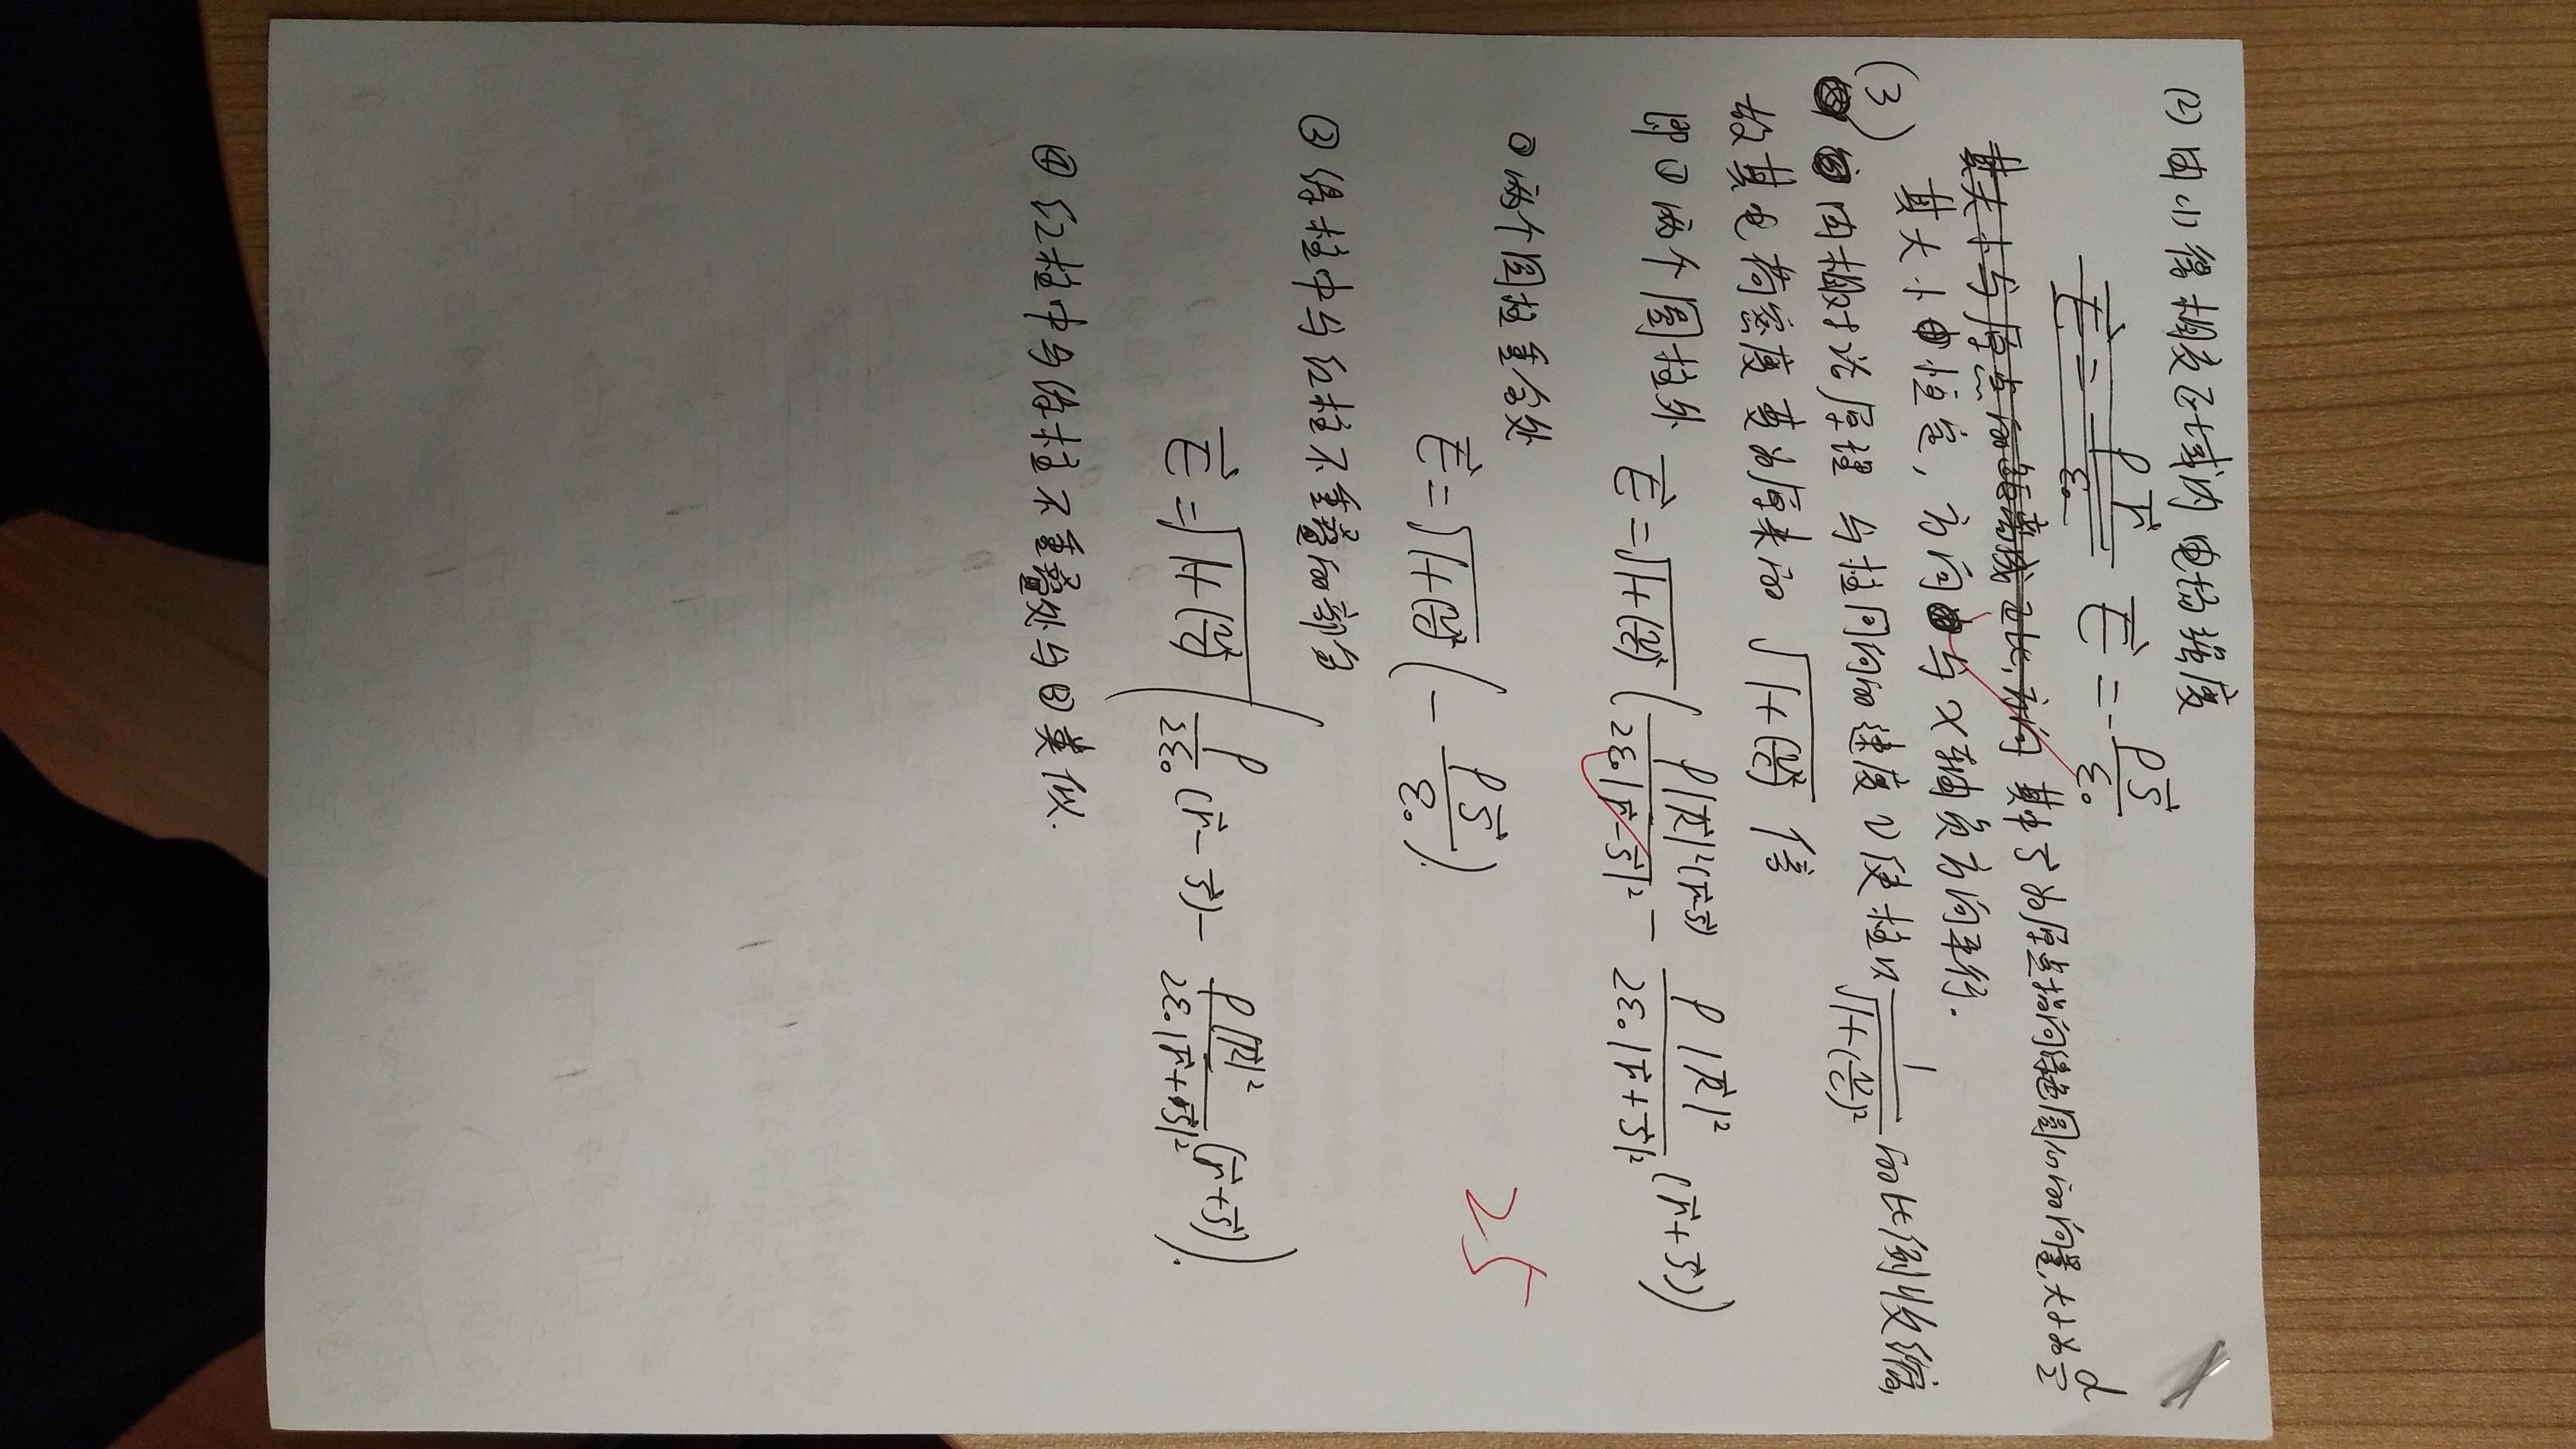 (2) 由(1)得相交区域内电场强度
E⃗ = ρr⃗/ε₀  E⃗ = -ρs⃗/ε₀
其大小与原点的距离成正比,方向 其中s⃗为原点指向绿色圆心的向量,大小为d/2
其大小恒定,方向与x轴负方向平行.
(3) 由相对论原理 与柱同向的速度v使柱以 1/√(1+(v/c)²) 的比例收缩,
故其电荷密度变为原来的 √(1+(v/c)²) 倍
即①两个圆柱外 E⃗ = √(1+(v/c)²) ( ρ|R⃗|²(r⃗-s⃗) / 2ε₀|r⃗-s⃗|² - ρ|R⃗|² / 2ε₀|r⃗+s⃗|² (r⃗+s⃗) )
②两个圆柱重合处
25
E⃗ = √(1+(v/c)²) ( - ρs⃗/ε₀ ).
③ 绿柱中与红柱不重叠的部分
E⃗ = √(1+(v/c)²) ( ρ/2ε₀ (r⃗-s⃗) - ρ|R⃗|² / 2ε₀|r⃗+s⃗|² (r⃗+s⃗) ).
④ 红柱中与绿柱不重叠处与③类似.